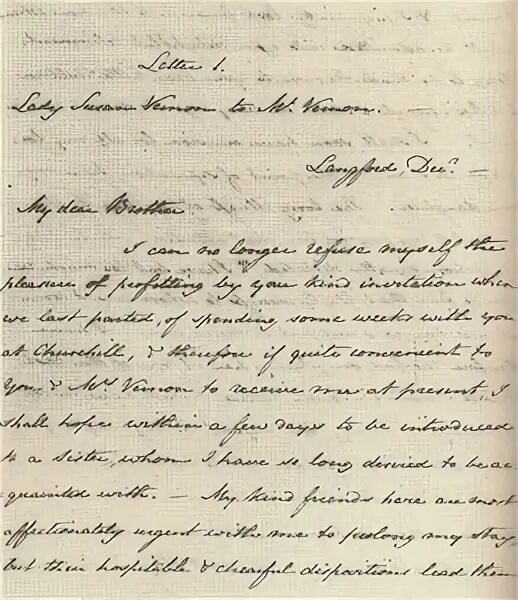 Letter 1.
Lady Susan Vernon to Mr. Vernon. —
Langford, Decr. —
My dear Brother
I can no longer refuse myself the
pleasure of profitting by your kind invitation when
we last parted, of spending some weeks with you
at Churchill, & therefore if quite convenient to
you & Mrs. Vernon to receive me at present, I
shall hope within a few days to be introduced
to a sister, whom I have so long desired to be ac
quainted with. — My kind friends here are most
affectionately urgent with me to prolong my stay,
but their hospitable & chearful dispositions lead them